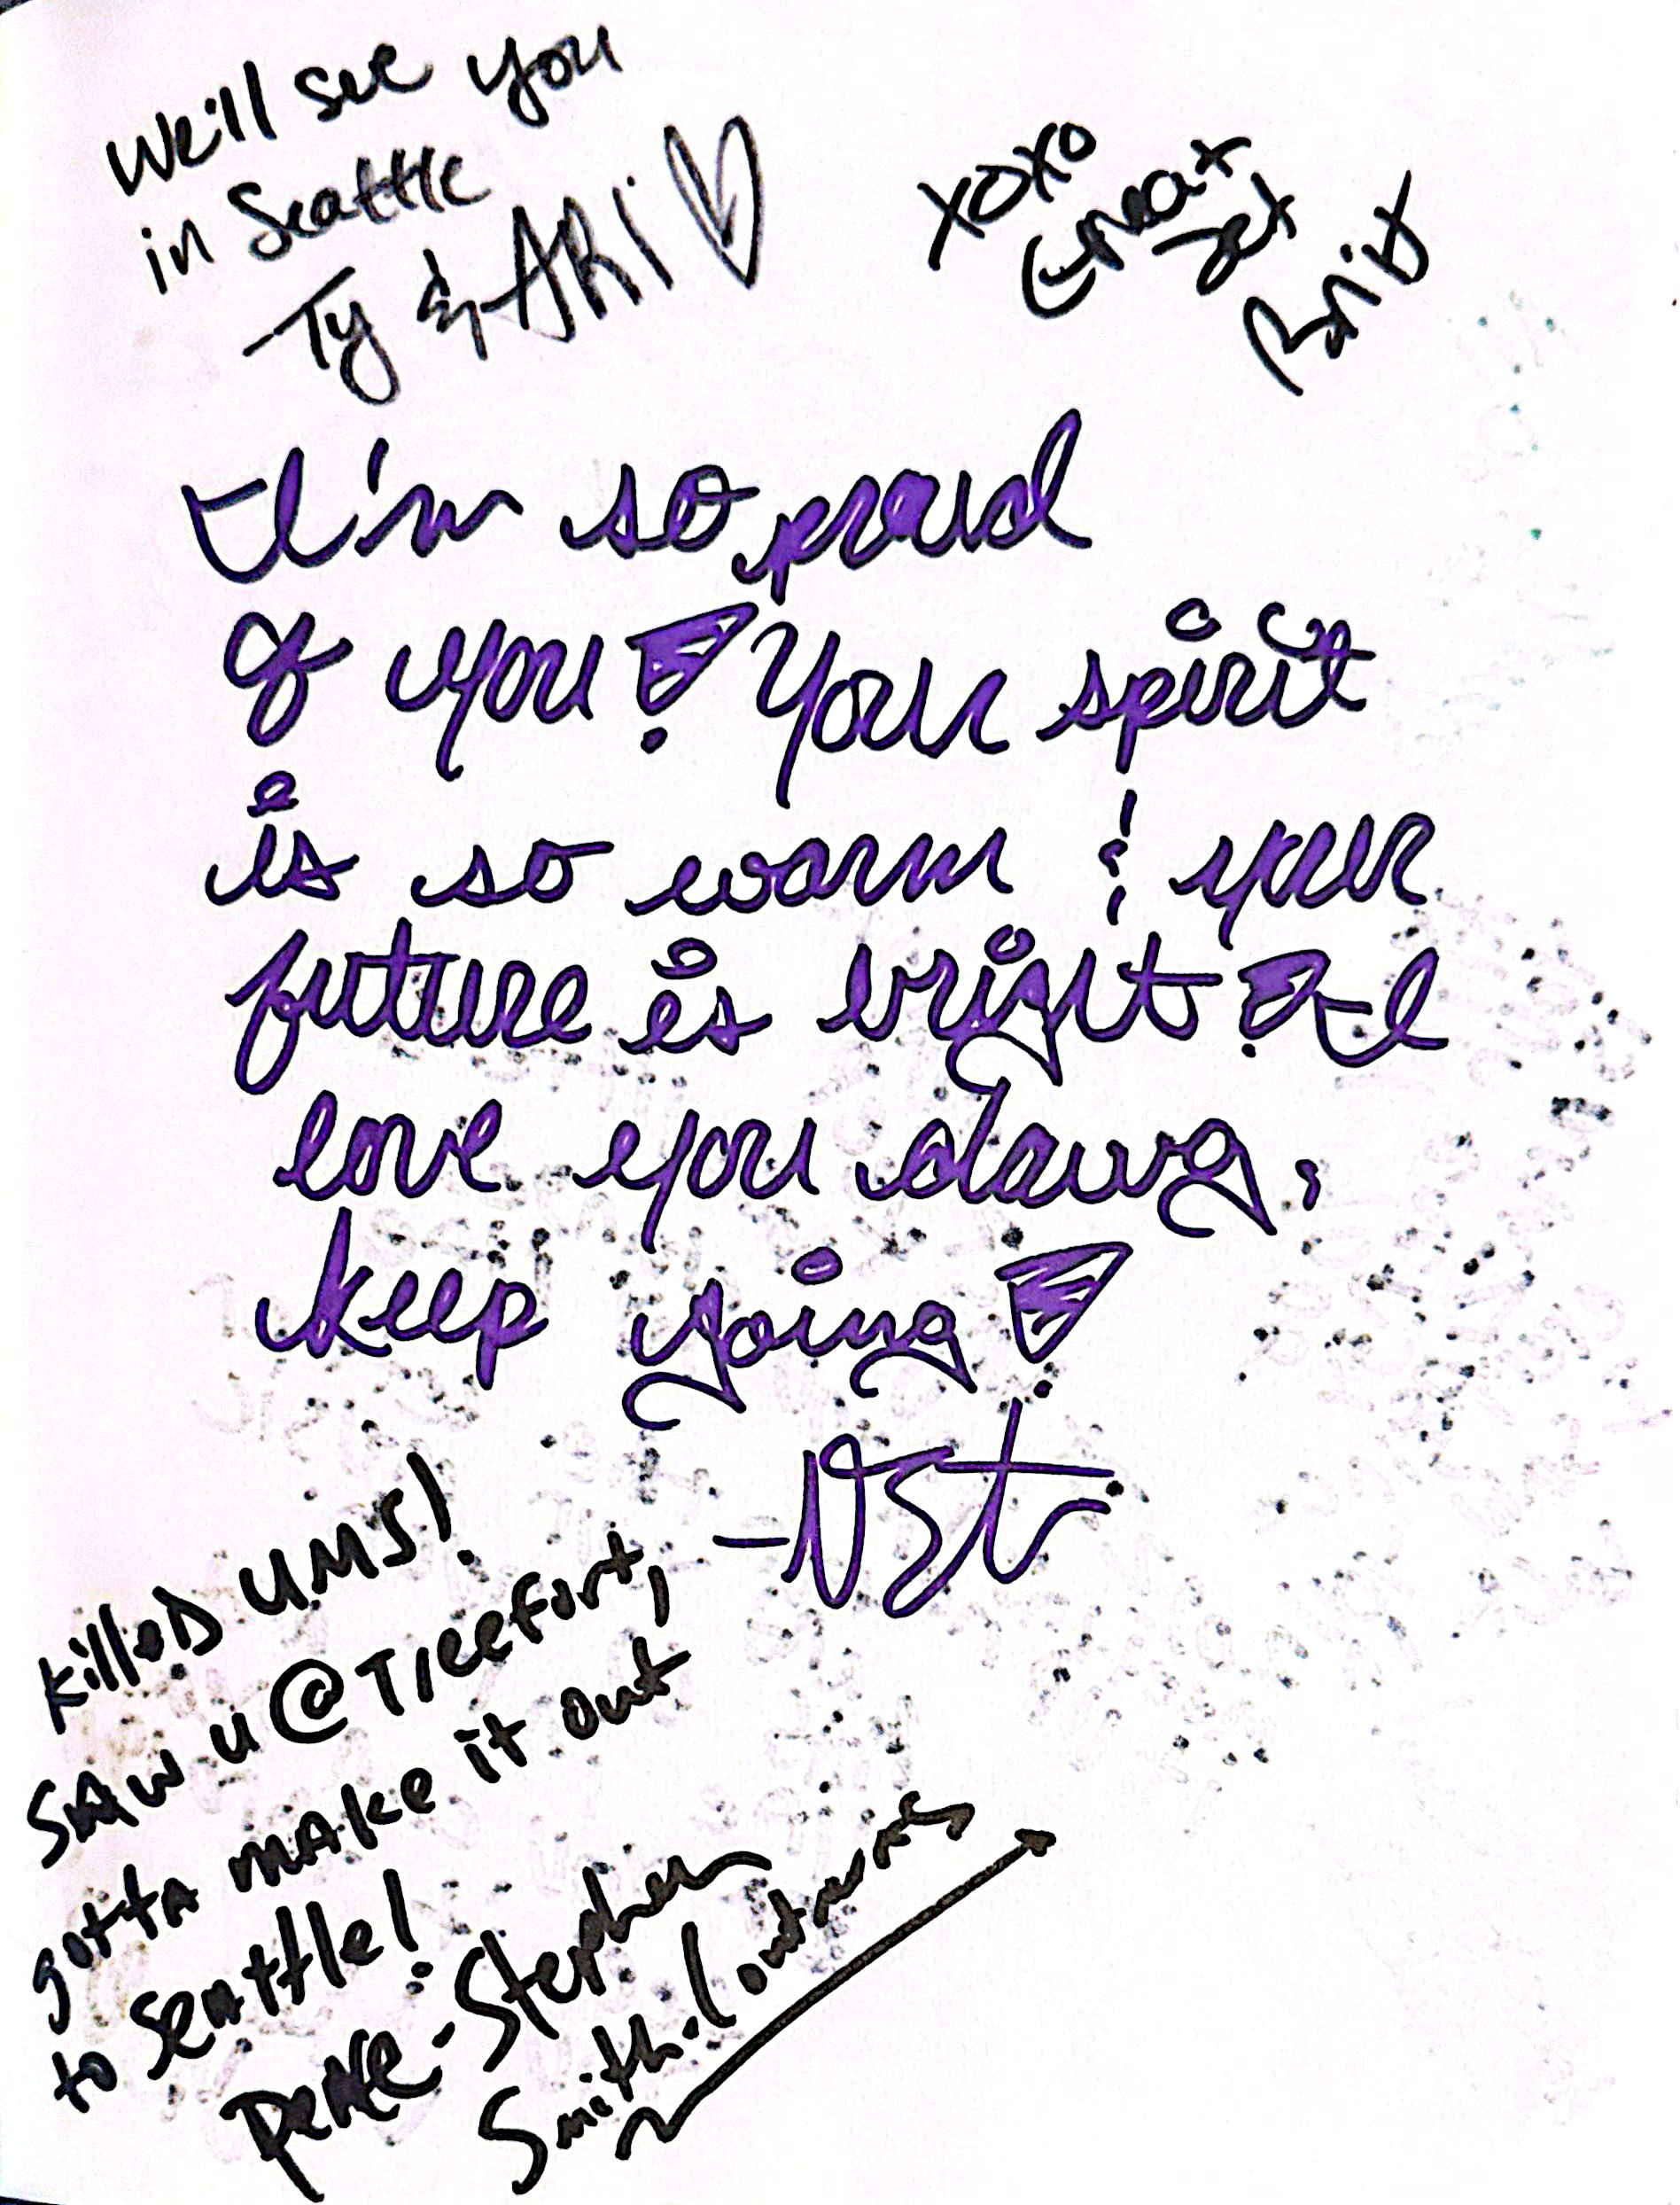 We'll see you
in Seattle
-Ty & ARi
XOXO
Jex
Brit
I'm so proud
of you! Your spirit
is so warm & your
future is bright! I
love you dawg,
keep going!
killeD UMS!
SAW u @ Treefort,
gottA mAke it out
to SeAttle!
PeAce - Stephen
Smith-